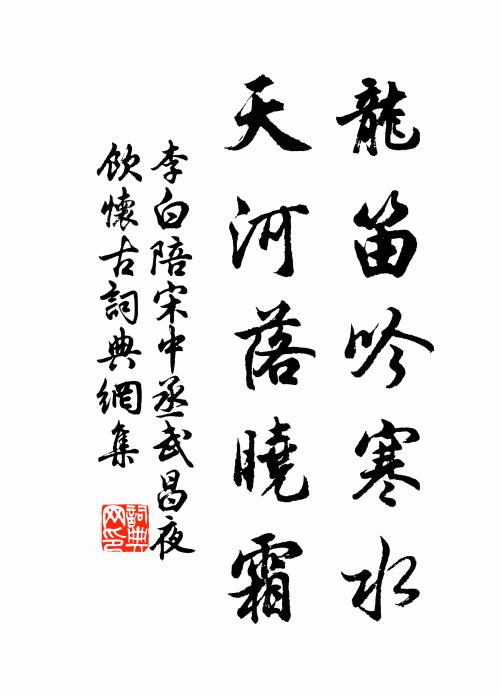 龍笛吟寒水
天河落曉霜
李白陪宋中丞武昌夜
飲懷古詞典網集
詞典
网印